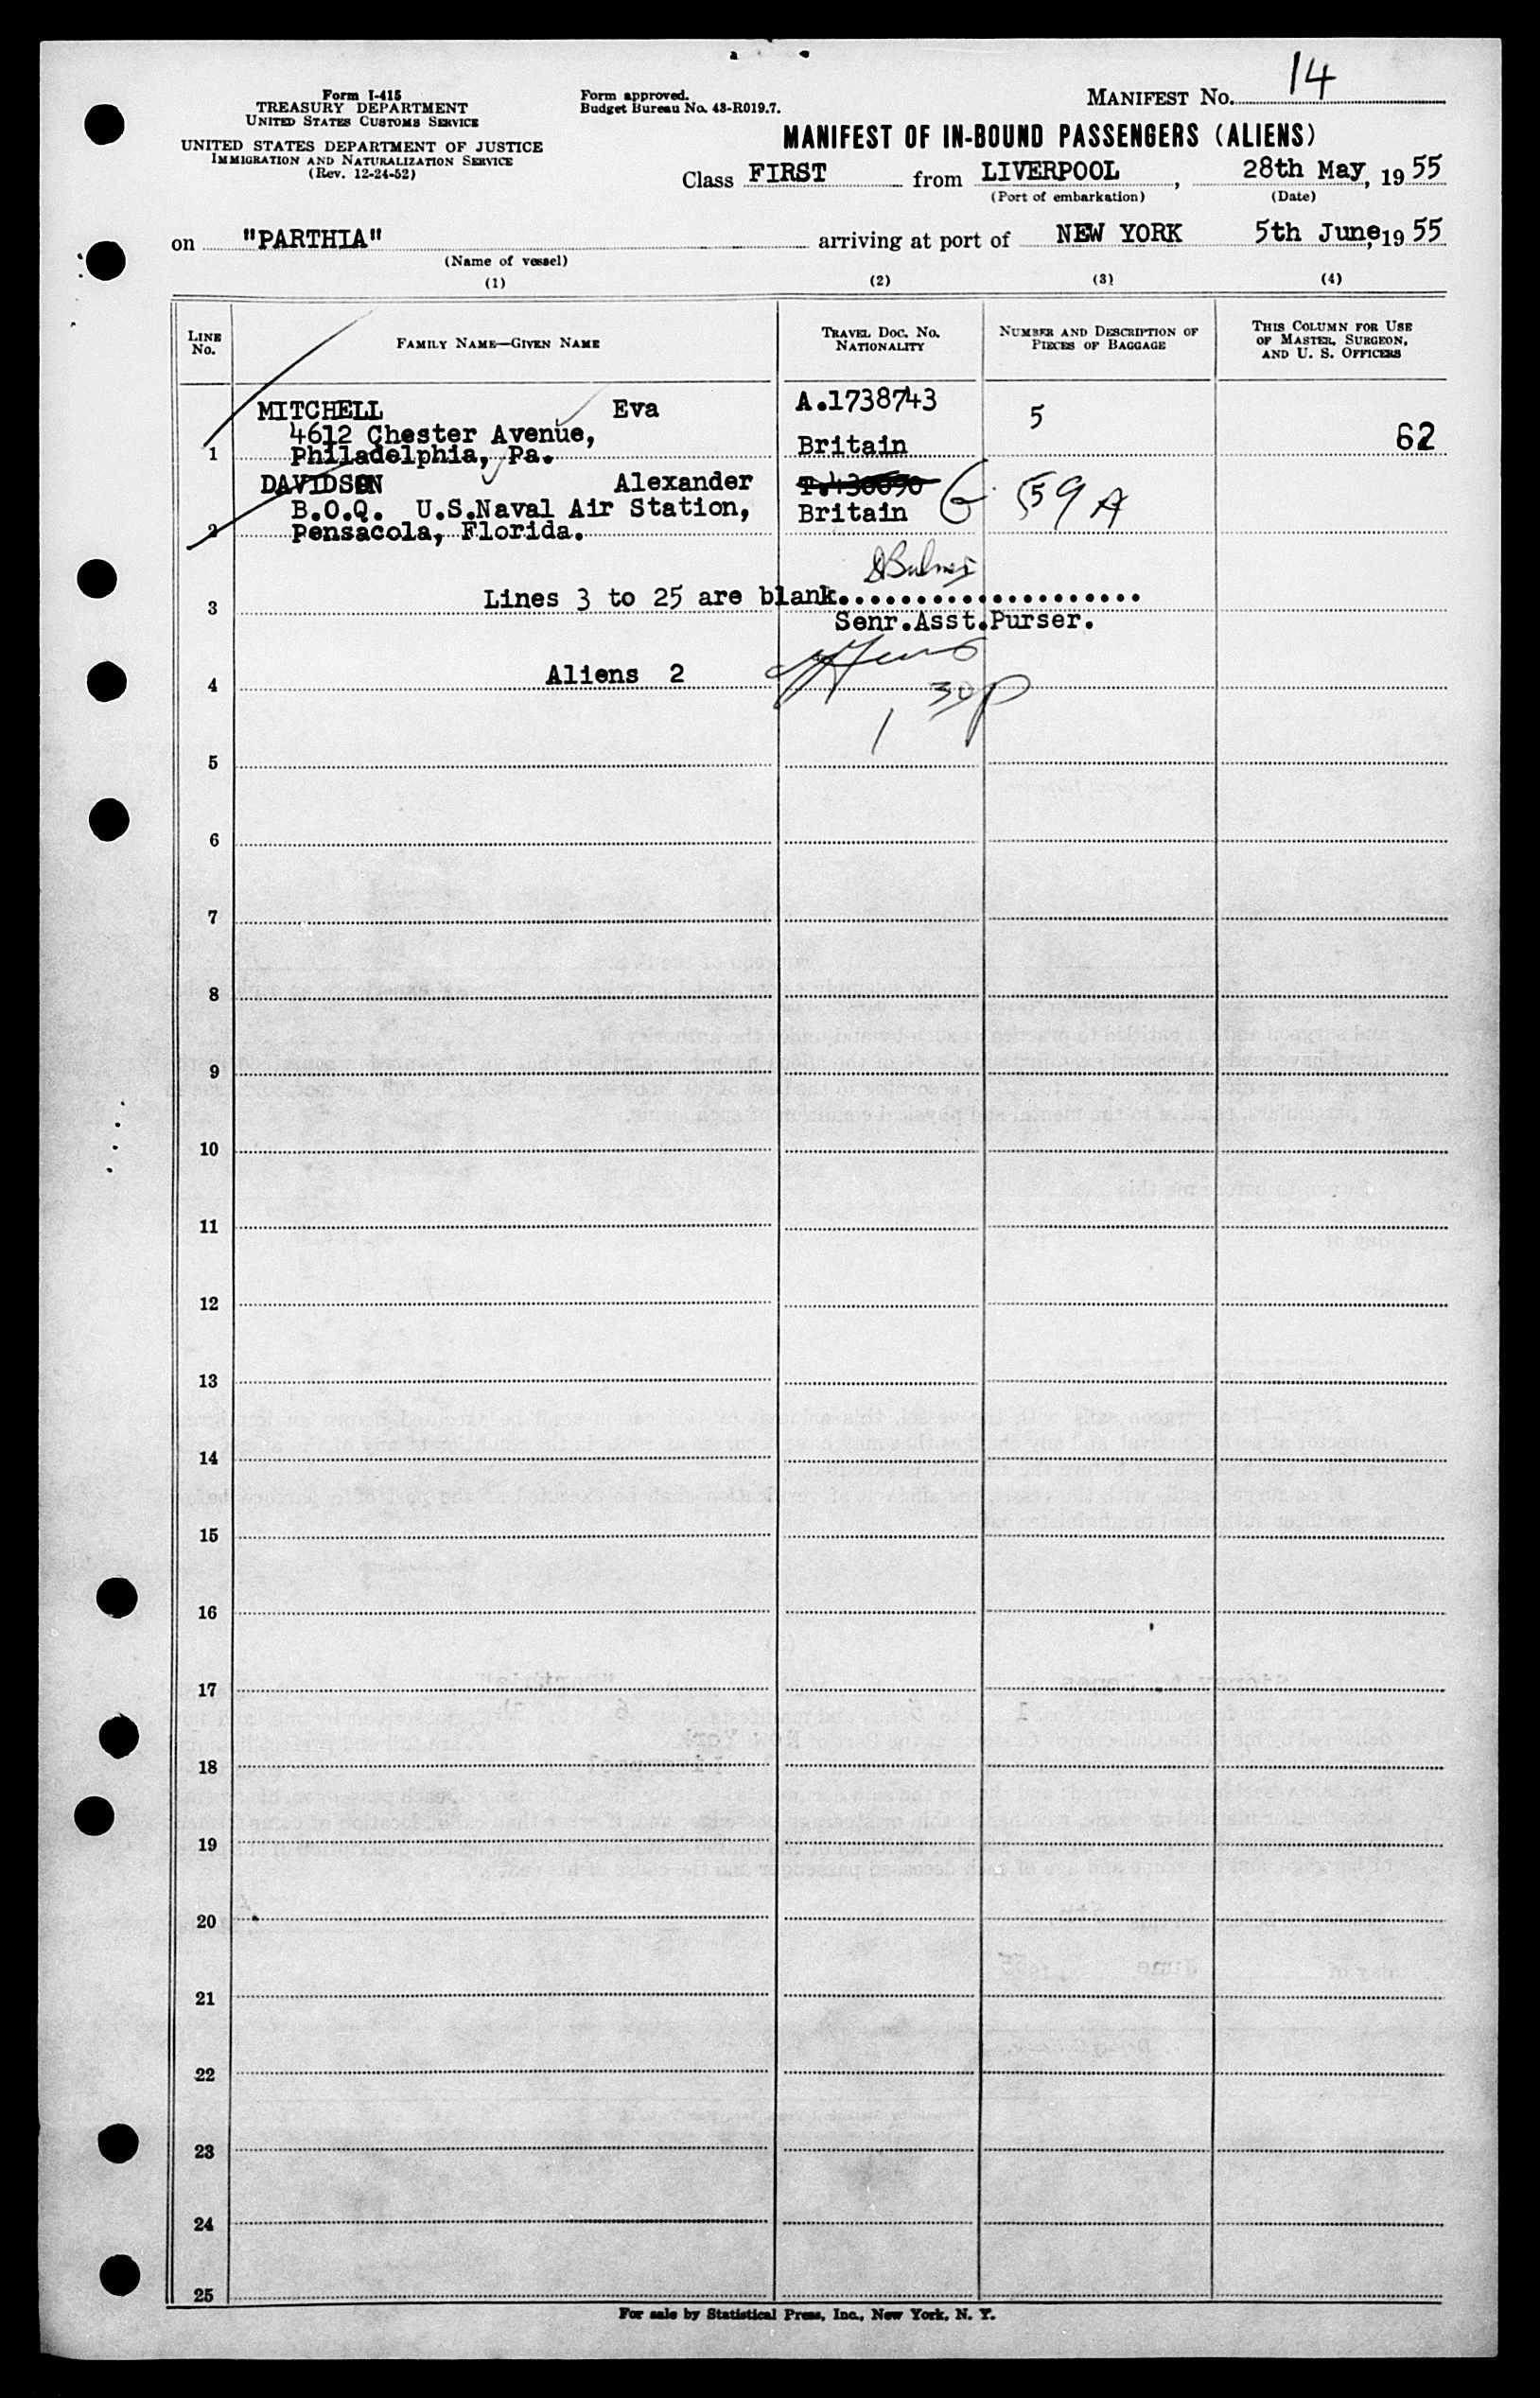 14
Form I-415
TREASURY DEPARTMENT
UNITED STATES CUSTOMS SERVICE
UNITED STATES DEPARTMENT OF JUSTICE
IMMIGRATION AND NATURALIZATION SERVICE
(Rev. 12-24-52)
Form approved.
Budget Bureau No. 43-R019.7.
MANIFEST NO.
MANIFEST OF IN-BOUND PASSENGERS (ALIENS)
Class FIRST from LIVERPOOL, 28th May, 1955
(Port of embarkation) (Date)
on "PARTHIA" arriving at port of NEW YORK 5th June, 1955
(Name of vessel)
(1) (2) (3) (4)
LINE NO.
FAMILY NAME—GIVEN NAME
TRAVEL DOC. NO. NATIONALITY
NUMBER AND DESCRIPTION OF PIECES OF BAGGAGE
THIS COLUMN FOR USE OF MASTER, SURGEON, AND U. S. OFFICERS
MITCHELL Eva A.1738743 5
4612 Chester Avenue, Britain 62
1 Philadelphia, Pa.
DAVIDSON Alexander
B.O.Q. U.S.Naval Air Station, Britain G 59 A
2 Pensacola, Florida.
3 Lines 3 to 25 are blank....................
Senr.Asst.Purser.
4 Aliens 2
1 30p
5
6
7
8
9
10
11
12
13
14
15
16
17
18
19
20
21
22
23
24
25
For sale by Statistical Press, Inc., New York, N. Y.